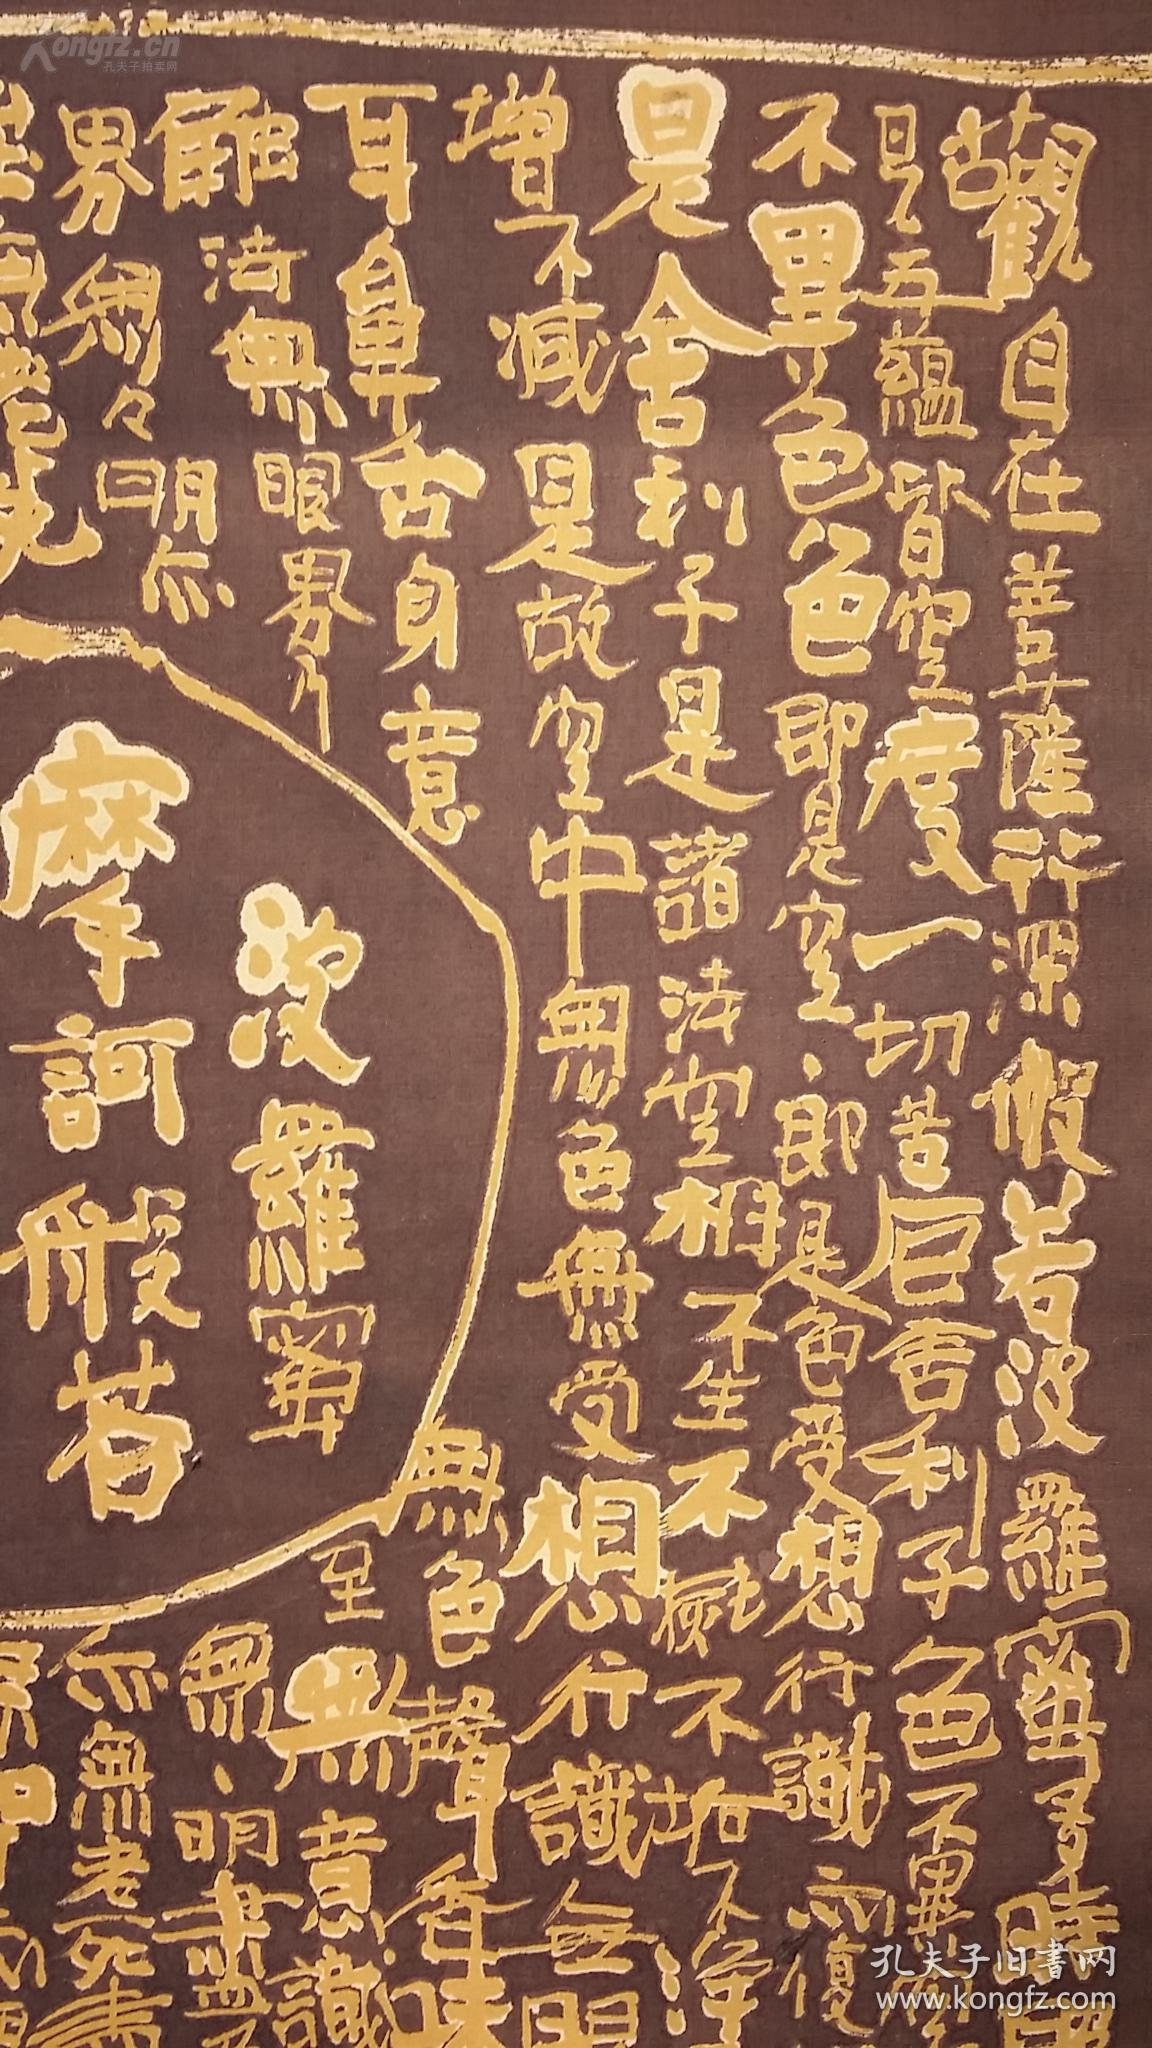 觀自在菩薩行深般若波羅蜜多時照
見五蘊皆空度一切苦厄舍利子色不異空
不異色色即是空、即是色受想行識亦復
是舍利子是諸法空相不生不滅不垢不淨
增不減是故空中無色無受想行識無眼
耳鼻舌身意無色聲香味
觸法無眼界乃至無意識
界無々明亦無、明盡
亦無老死亦
摩訶般若
波羅蜜
孔夫子旧書网
www.kongfz.com
Kongfz.cn
孔夫子拍卖网